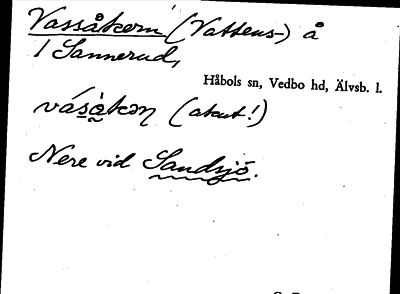 Vassåkern (Vattens-) å
1 Sannerud,
Håbols sn, Vedbo hd, Älvsb. l.
vásàkən (akut!)
Nere vid Sandsjö.